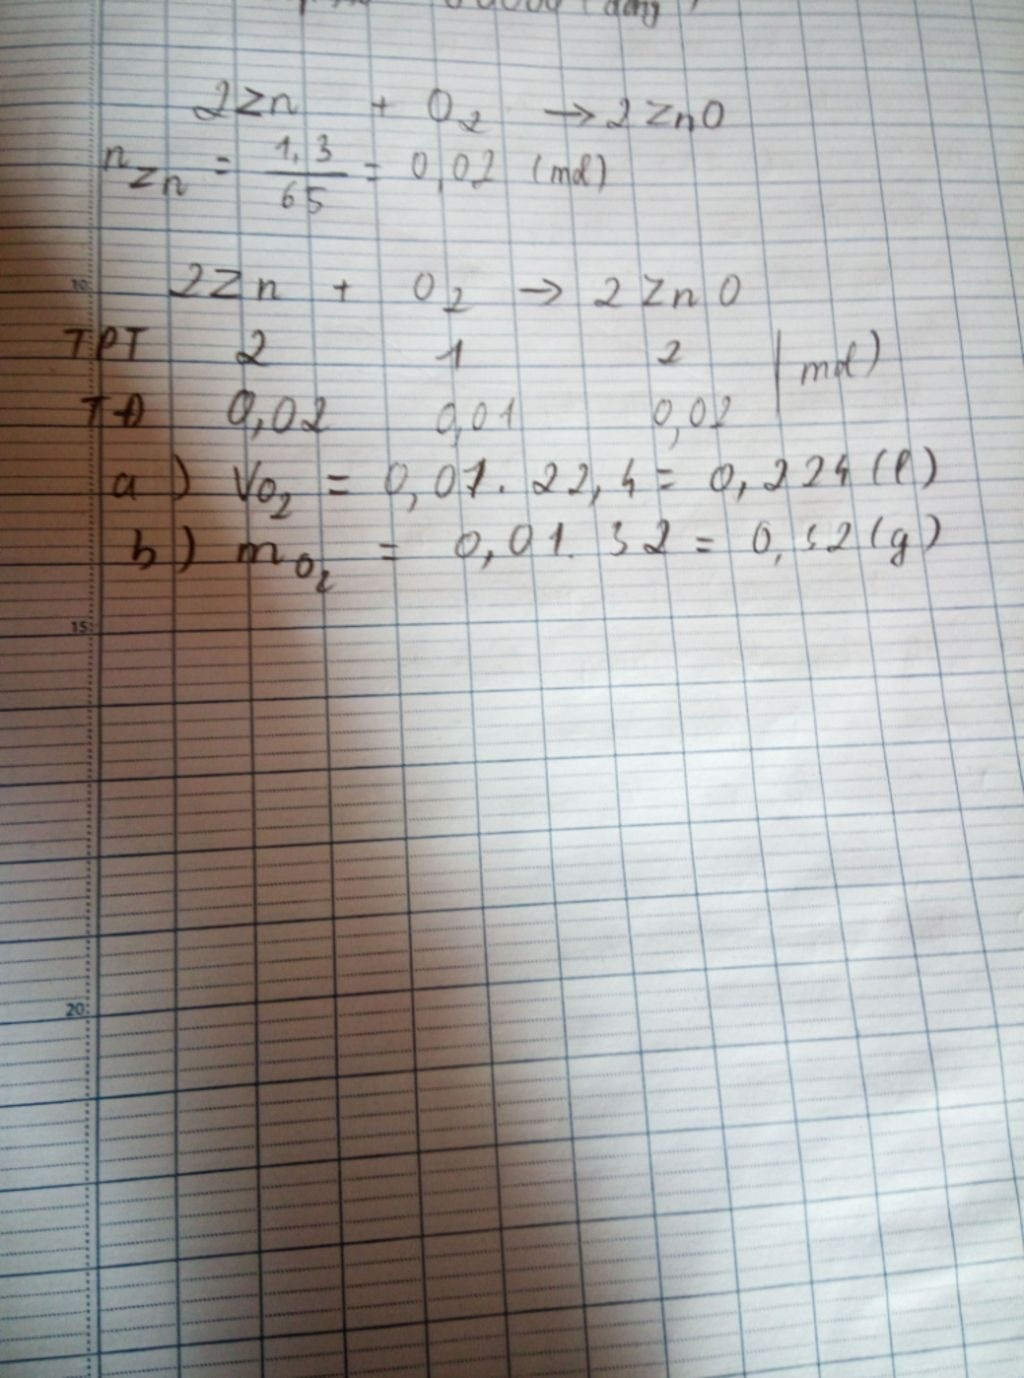 (đồng)
2Zn + O₂ → 2ZnO
nZn = 1,3/65 = 0,02 (mol)
10
2Zn + O₂ → 2ZnO
TPT 2 1 2 (mol)
TĐ 0,02 0,01 0,02
a) VO₂ = 0,01. 22,4 = 0,224 (l)
b) mO₂ = 0,01. 32 = 0,32 (g)
15
20